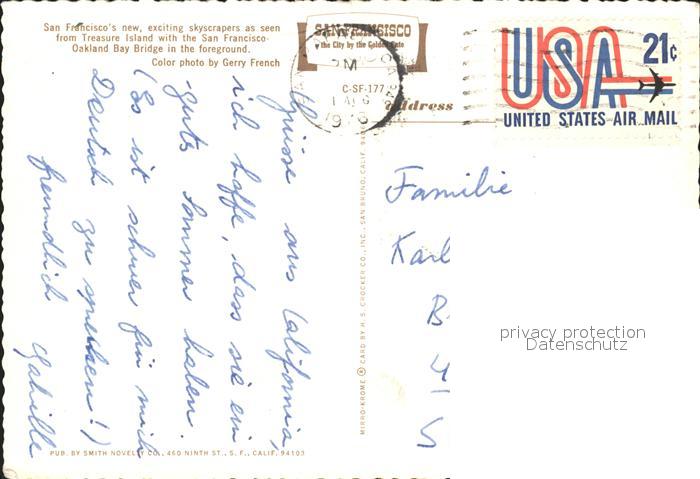 San Francisco's new, exciting skyscrapers as seen
from Treasure Island with the San Francisco-
Oakland Bay Bridge in the foreground.
Color photo by Gerry French
SAN FRANCISCO
the City by the Golden Gate
C-SF-177
Address
PM
USA 21¢
UNITED STATES AIR MAIL
Grüsse aus California,
ich hoffe, dass sie ein
gutes Sommer haben.
(Es ist schwer für mich
Deutsch zu sprechen!)
freundlich
MIRRO-KROME ® CARD BY H. S. CROCKER CO., INC., SAN BRUNO, CALIF.
Familie
Karl
B
privacy protection
Datenschutz
PUB. BY SMITH NOVELTY CO., 460 NINTH ST., S. F., CALIF. 94103